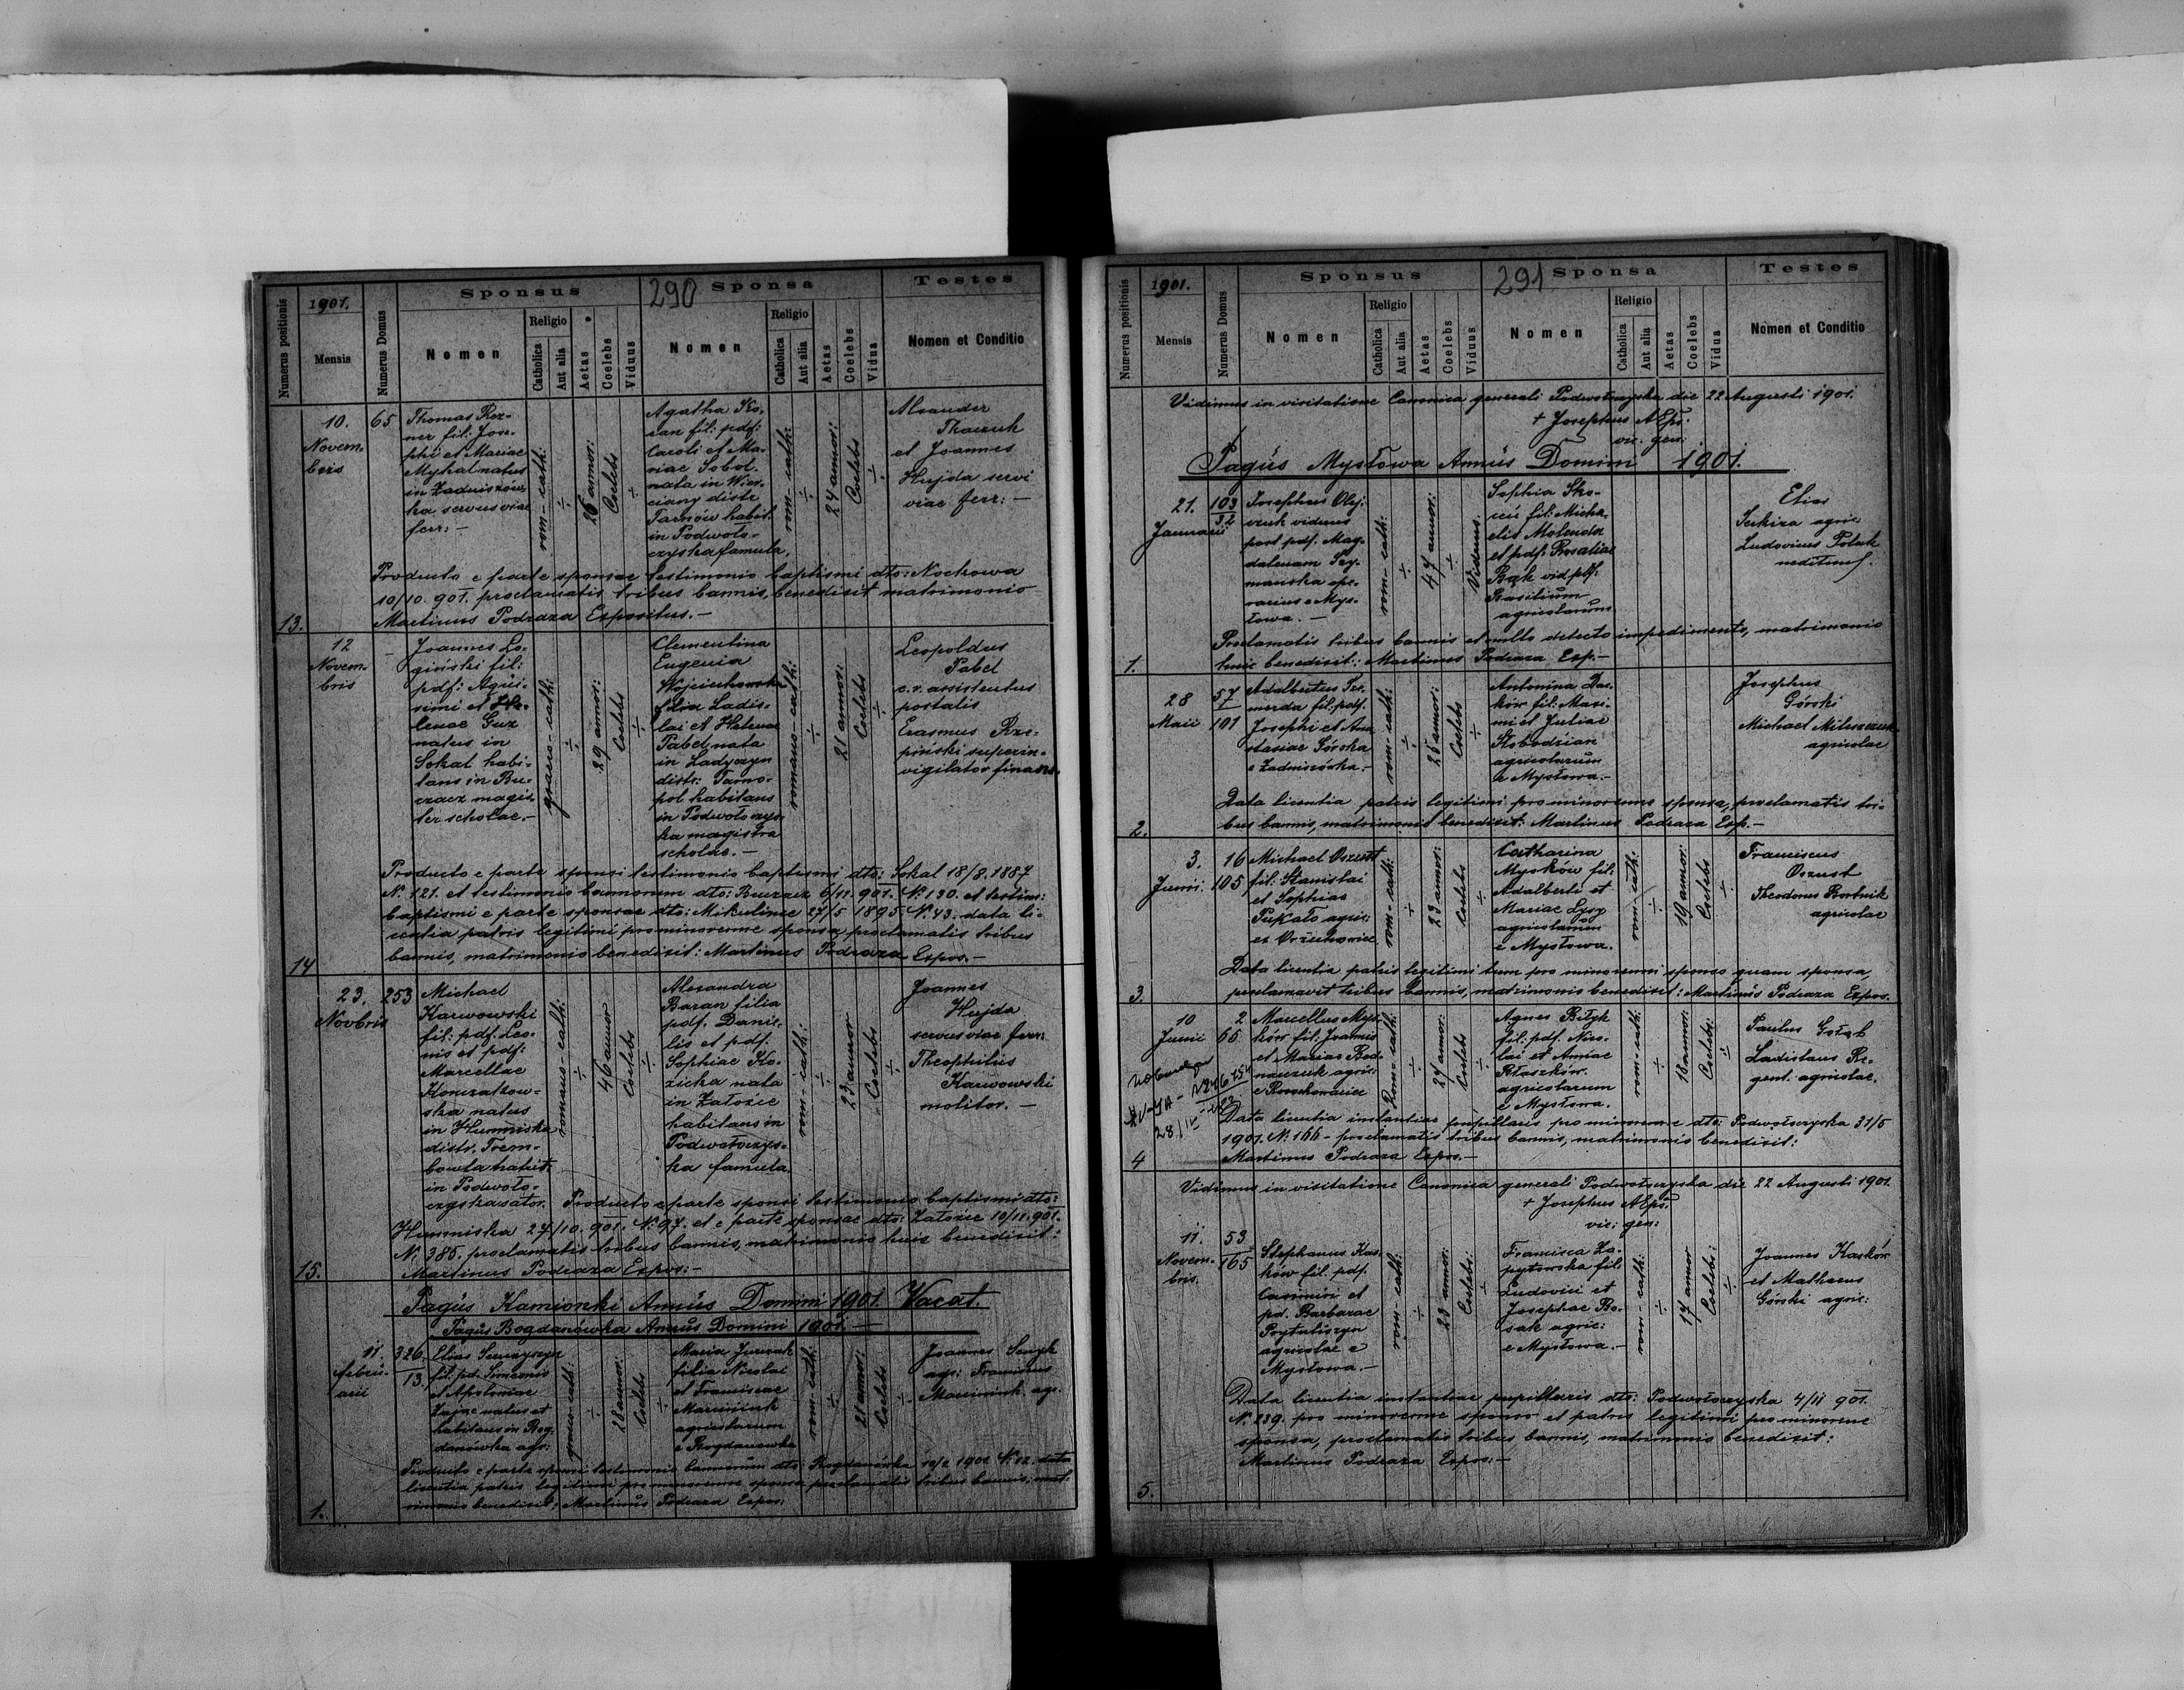 290
Numerus positionis
1901.
Mensis
Numerus Domus
Sponsus
Nomen
Religio
Catholica
Aut alia
Aetas
Coelebs
Viduus
Sponsa
Nomen
Religio
Catholica
Aut alia
Aetas
Coelebs
Vidua
Testes
Nomen et Conditio
13.
10.
Novem-
bris
65
Thomas Rez-
ner fil: Jose-
phi et Mariae
Myhal natus
in Zadniszów-
ka servus viae
ferr: -
rom-cath:
÷
26 annor:
Coelebs
÷
Agatha Ko-
ran fil: pdf:
Caroli et Ma-
riae Sobol
nata in Wier-
ciany distr
Tarnów habit.
in Podwoło-
czyska famula.
rom-cath:
÷
24 annor:
Coelebs
÷
Alexander
Tkaczuk
et Joannes
Hujda servi
viae ferr: -
Producto e parte sponsae testimonio baptismi dto: Nockowa
10/10. 901. proclamatis tribus bannis, benedixit matrimonio
Martinus Podraza Expositus. -
14
12
Novem-
bris
-
Joannes Lo-
giński fil:
pdf:
et He-
lenae Guz
natus in
Sokal habi-
tans in Bu-
czacz magis-
ter scholae. -
graeco-cath:
÷
29 annor:
Coelebs
÷
Clementina
Eugenia
Wojciechowska
filia Ladis-
lai et Helenae
Pabel nata
in Ladyczyn
distr: Tarno-
pol habitans
in Podwołoczys-
ka magistra
scholae. -
romano-cath:
÷
21 annor:
Coelebs
÷
Leopoldus
Pabel
c. r. assistentus
postalis
Erasmus Rze-
piński superin-
vigilator financ.
Producto e parte sponsi testimonio baptismi dto: Sokal 18/8. 1887
N. 121. et testimonio bannorum dto: Buczacz 6/11. 901. N. 130. et testim:
baptismi e parte sponsae dto: Mikulince 27/5 1895 N. 43. data li-
centia patris legitimi pro minorenne sponsa, proclamatis tribus
bannis, matrimonio benedixit: Martinus Podraza Expos. -
15.
23.
Novbris
253
Michael
Karwowski
fil: pdf. Leo-
nis et pdf:
Marcellae
Konczakow-
ska natus
in Humniska
distr. Trem-
bowla habit.
in Podwoło-
czyska sator.
romano-cath:
÷
46 annor
Coelebs
÷
Alexandra
Baran filia
pdf. Danie-
lis et pdf.
Sophiae Ko-
zicka nata
in Załoźce
habitans in
Podwołoczys-
ka famula.
rom-cath:
÷
23 annor
Coelebs
÷
Joannes
Hujda
servus viae ferr:
Theophilus
Karwowski
molitor. -
Producto e parte sponsi testimonio baptismi dto:
Humniska 27/10. 901. N. 97. et e parte sponsae dto: Załoźce 10/11. 901.
N. 385. proclamatis tribus bannis, matrimonio huic benedixit:
Martinus Podraza Expos: -
Pagus Kamionki Annus Domini 1901. Vacat.
Pagus Bogdanówka Annus Domini 1901. -
1.
11.
Febru-
arii
326.
13.
Elias
fil: pdf. Simeonis
et Apoloniae
Zając natus et
habitans in Bog-
danówka agr:
graeco-cath:
÷
28 annor:
Coelebs
÷
Maria Jurczak
filia Nicolai
et Franciscae
Marciniuk
agricolarum
e Bogdanówka
rom-cath:
÷
21 annor:
Coelebs
÷
Joannes Senyk
agr: Franciscus
Marciniuk agr.
Producto e parte sponsi testimonio bannorum dto: Bogdanówka 10/2 1901 N. 12. data
licentia patris legitimi pro minorenne sponsa proclamatis tribus bannis, mat-
rimonio benedixit: Martinus Podraza Expos:
291
Numerus positionis
1901.
Mensis
Numerus Domus
Sponsus
Nomen
Religio
Catholica
Aut alia
Aetas
Coelebs
Viduus
Sponsa
Nomen
Religio
Catholica
Aut alia
Aetas
Coelebs
Vidua
Testes
Nomen et Conditio
Vidimus in visitatione Canonica generali Podwołoczyska die 22 Augusti 1901.
+ Josephus AEpō.
vic. gen:
Pagus Mysłowa Annus Domini 1901.
1.
21.
Januarii
103
32
Josephus Olej-
czuk viduus
post pdf. Mag-
dalenam Szy-
mańska ope-
rarius e Mys-
łowa. -
rom-cath:
÷
47 annor:
÷
Viduus.
Sophia Sko-
fil: Micha-
elis Molenda
et pdf. Rosaliae
Bąk vid pdf:
agricolarum
Elias
agric:
Ludovicus Polak
Proclamatis tribus bannis et nullo detecto impedimento, matrimonio
huic benedixit: Martinus Podraza Exp. -
2.
28
Maii
57
101
Adalbertus
fil. pdf.
Josephi et Ana-
stasiae Górska
e Zadniszówka. -
rom-cath:
÷
25 annor:
Coelebs
÷
Antonina Das-
ków fil: Maxi-
mi et Juliae
Słobodzian
agricolarum
e Mysłowa. -
Josephus
Górski
Michael
agricolae
Data licentia patris legitimi pro minorenne sponsa, proclamatis tri-
bus bannis, matrimonio benedixit: Martinus Podraza Exp. -
3.
3.
Junii.
16
105
Michael Oszust
fil: Stanislai
et Sophiae
Pukało agric:
ex Orzechowiec
rom-cath:
÷
23 annor:
Coelebs
÷
Catharina
Mysków fil:
Adalberti et
Mariae Łysy
agricolarum
e Mysłowa.
rom-cath:
÷
19 annor:
Coelebs
÷
Franciscus
Oszust
Theodorus Bortnik
agricolae
Data licentia patris legitimi tum pro minorenni sponso quam sponsa,
proclamavit tribus bannis, matrimonio benedixit: Martinus Podraza Expos.
4
10
Junii
2
66
Marcellus Mys-
ków fil: Joannis
et Mariae Bod-
naczuk agric:
e
Rom-cath:
÷
24 annor:
Coelebs
÷
Agnes Biłyk
fil: pdf. Nico-
lai et Annae
agricolarum
e Mysłowa.
rom-cath:
÷
18 annor:
Coelebs:
÷
Paulus Gołąb
Ladislaus Re-
gent. agricolae.
Data licentia instantiae pupillaris pro minorenne dto: Podwołoczyska 31/5
1901. N. 166 - proclamatis tribus bannis, matrimonio benedixit:
Martinus Podraza Expos. -
Vidimus in visitatione Canonica generali Podwołoczyska die 22 Augusti 1901.
+ Josephus AEpō.
vic: gen:
5.
11.
Novem-
bris.
53
165
Stephanus Kas-
ków fil. pdf.
Casimiri et
pd. Barbarae
Prytuliszyn
agricolae e
Mysłowa. -
rom-cath:
÷
23 annor:
Coelebs:
÷
Francisca Za-
pytowska fil:
Ludovici et
Josephae Bo-
sak agric:
e Mysłowa. -
rom-cath:
÷
17 annor
Coelebs:
÷
Joannes Kasków
et Mathaeus
Górski agric:
Data licentia instantiae pupillaris dto: Podwołoczyska 4/11 901.
N. 239. pro minorenne sponso et patris legitimi pro minorenne
sponsa, proclamatis tribus bannis, matrimonio benedixit:
Martinus Podraza Expos: -